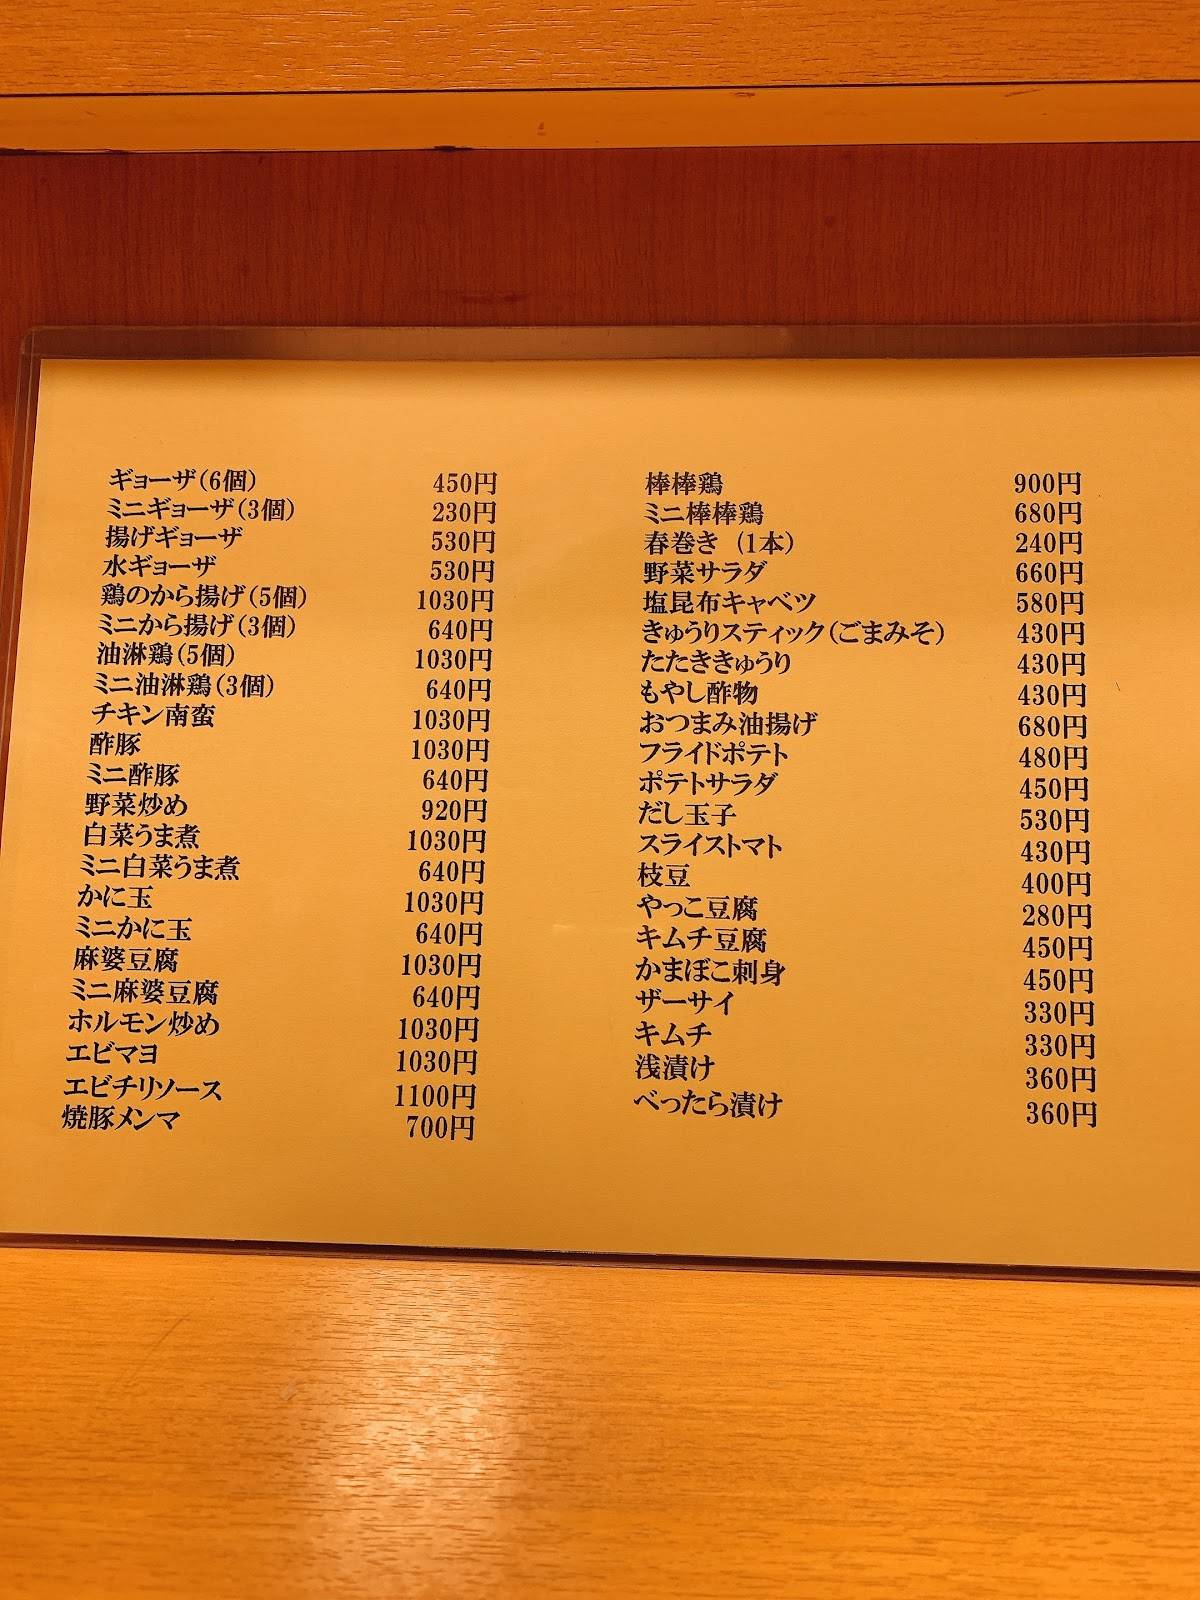 ギョーザ(6個) 450円
ミニギョーザ(3個) 230円
揚げギョーザ 530円
水ギョーザ 530円
鶏のから揚げ(5個) 1030円
ミニから揚げ(3個) 640円
油淋鶏(5個) 1030円
ミニ油淋鶏(3個) 640円
チキン南蛮 1030円
酢豚 1030円
ミニ酢豚 640円
野菜炒め 920円
白菜うま煮 1030円
ミニ白菜うま煮 640円
かに玉 1030円
ミニかに玉 640円
麻婆豆腐 1030円
ミニ麻婆豆腐 640円
ホルモン炒め 1030円
エビマヨ 1030円
エビチリソース 1100円
焼豚メンマ 700円
棒棒鶏 900円
ミニ棒棒鶏 680円
春巻き (1本) 240円
野菜サラダ 660円
塩昆布キャベツ 580円
きゅうりスティック(ごまみそ) 430円
たたききゅうり 430円
もやし酢物 430円
おつまみ油揚げ 680円
フライドポテト 480円
ポテトサラダ 450円
だし玉子 530円
スライストマト 430円
枝豆 400円
やっこ豆腐 280円
キムチ豆腐 450円
かまぼこ刺身 450円
ザーサイ 330円
キムチ 330円
浅漬け 360円
べったら漬け 360円